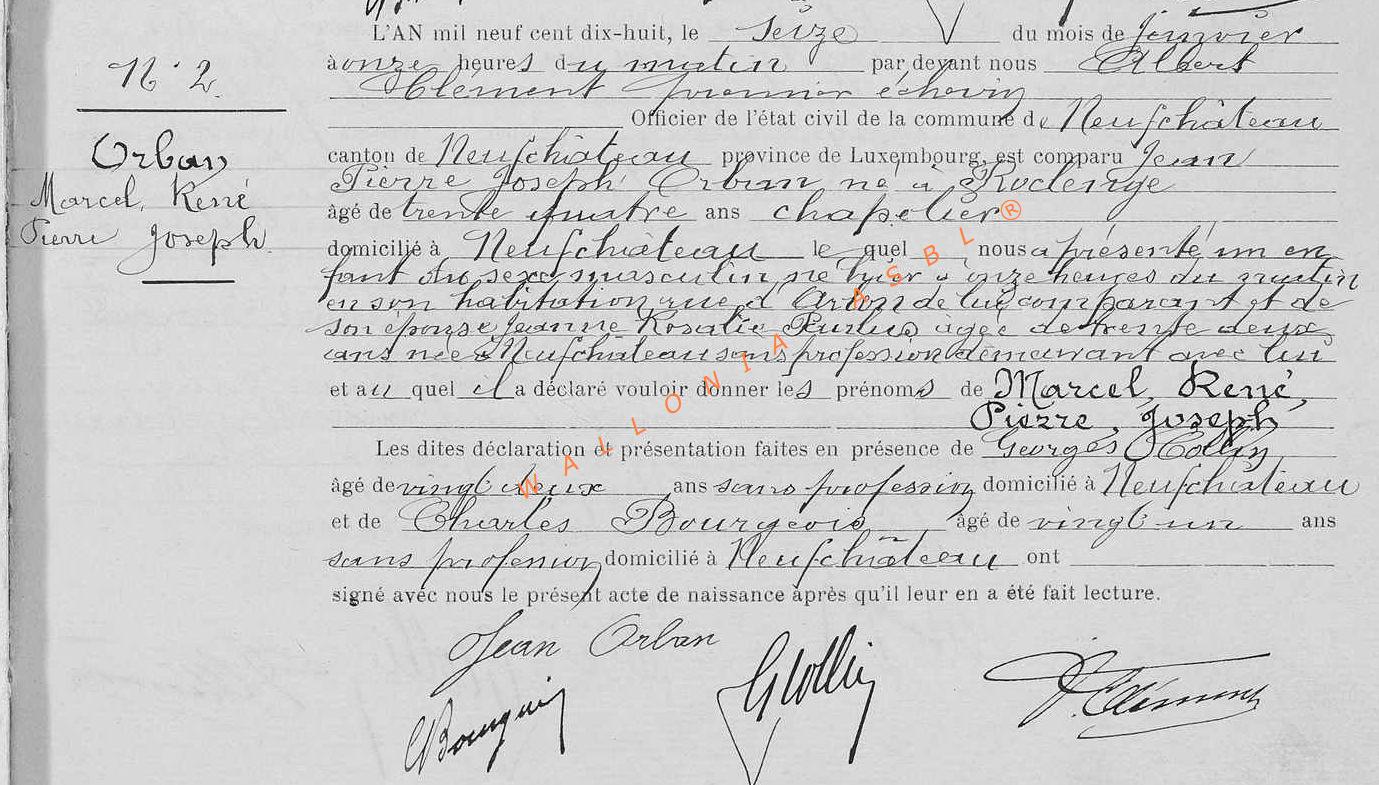 N° 2.
Orban
Marcel, René
Pierre Joseph.
L'AN mil neuf cent dix-huit, le seize du mois de janvier
à onze heures du matin par devant nous Albert
Clément premier échevin
Officier de l'état civil de la commune de Neufchâteau
canton de Neufchâteau province de Luxembourg, est comparu Jean
Pierre Joseph Orban né à Roclenge
âgé de trente quatre ans chapelier
domicilié à Neufchâteau le quel nous a présenté un en
fant du sexe masculin né hier à onze heures du matin
en son habitation rue d'Arlon de lui comparant et de
son épouse Jeanne Rosalie âgée de trente deux
ans née à Neufchâteau sans profession demeurant avec lui
et au quel il a déclaré vouloir donner les prénoms de Marcel, René,
Pierre, Joseph
Les dites déclaration et présentation faites en présence de Georges Collin
âgé de vingt deux ans sans profession domicilié à Neufchâteau
et de Charles Bourgeois âgé de vingt un ans
sans profession domicilié à Neufchâteau ont
signé avec nous le présent acte de naissance après qu'il leur en a été fait lecture.
Jean Orban
GCollin
Clément
WALLONIA ASBL ®